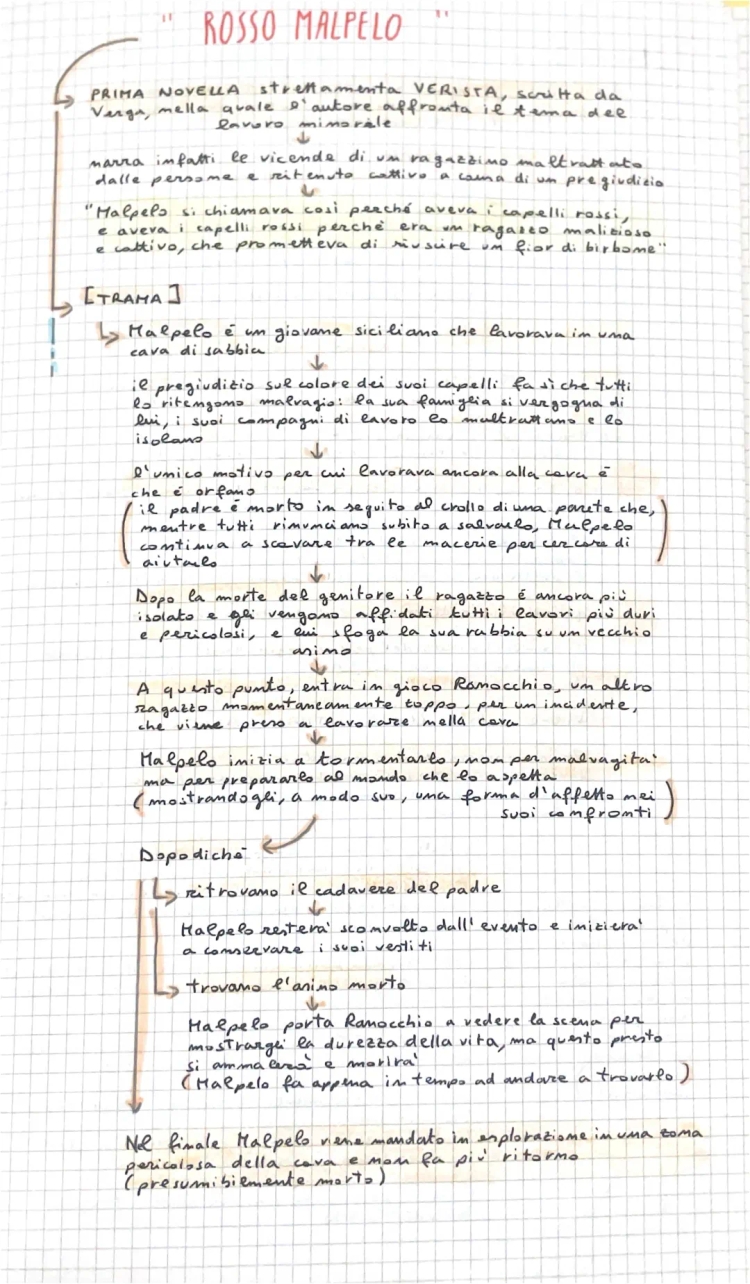 " ROSSO MALPELO "
PRIMA NOVELLA strettamenta VERISTA, scritta da
Verga, nella quale l'autore affronta il tema del
lavoro minorile
narra infatti le vicende di un ragazzino maltrattato
dalle persone e ritenuto cattivo a causa di un pregiudizio
"Malpelo si chiamava così perché aveva i capelli rossi,
e aveva i capelli rossi perché era un ragazzo malizioso
e cattivo, che prometteva di riuscire un fior di birbone"
[TRAMA]
Malpelo é un giovane siciliano che lavorava in una
cava di sabbia
il pregiudizio sul colore dei suoi capelli fa sì che tutti
lo ritengono malvagio: la sua famiglia si vergogna di
lui, i suoi compagni di lavoro lo maltrattano e lo
isolano
l'unico motivo per cui lavorava ancora alla cava é
che é orfano
(il padre é morto in seguito al crollo di una parete che,
mentre tutti rinunciano subito a salvarlo, Malpelo
continua a scavare tra le macerie per cercare di
aiutarlo)
Dopo la morte del genitore il ragazzo é ancora più
isolato e gli vengono affidati tutti i lavori più duri
e pericolosi, e lui sfoga la sua rabbia su un vecchio
asino
A questo punto, entra in gioco Ranocchio, un altro
ragazzo momentaneamente zoppo, per un incidente,
che viene preso a lavorare nella cava
Malpelo inizia a tormentarlo, non per malvagita'
ma per prepararlo al mondo che lo aspetta
(mostrandogli, a modo suo, una forma d'affetto nei
suoi confronti)
Dopodiché
ritrovano il cadavere del padre
Malpelo resterà sconvolto dall'evento e inizierà
a conservare i suoi vestiti
trovano l'asino morto
Malpelo porta Ranocchio a vedere la scena per
mostrargli la durezza della vita, ma questo presto
si ammalerà e morirà
(Malpelo fa appena in tempo ad andare a trovarlo)
Nel finale Malpelo viene mandato in esplorazione in una zona
pericolosa della cava e non fa più ritorno
(presumibilmente morto)